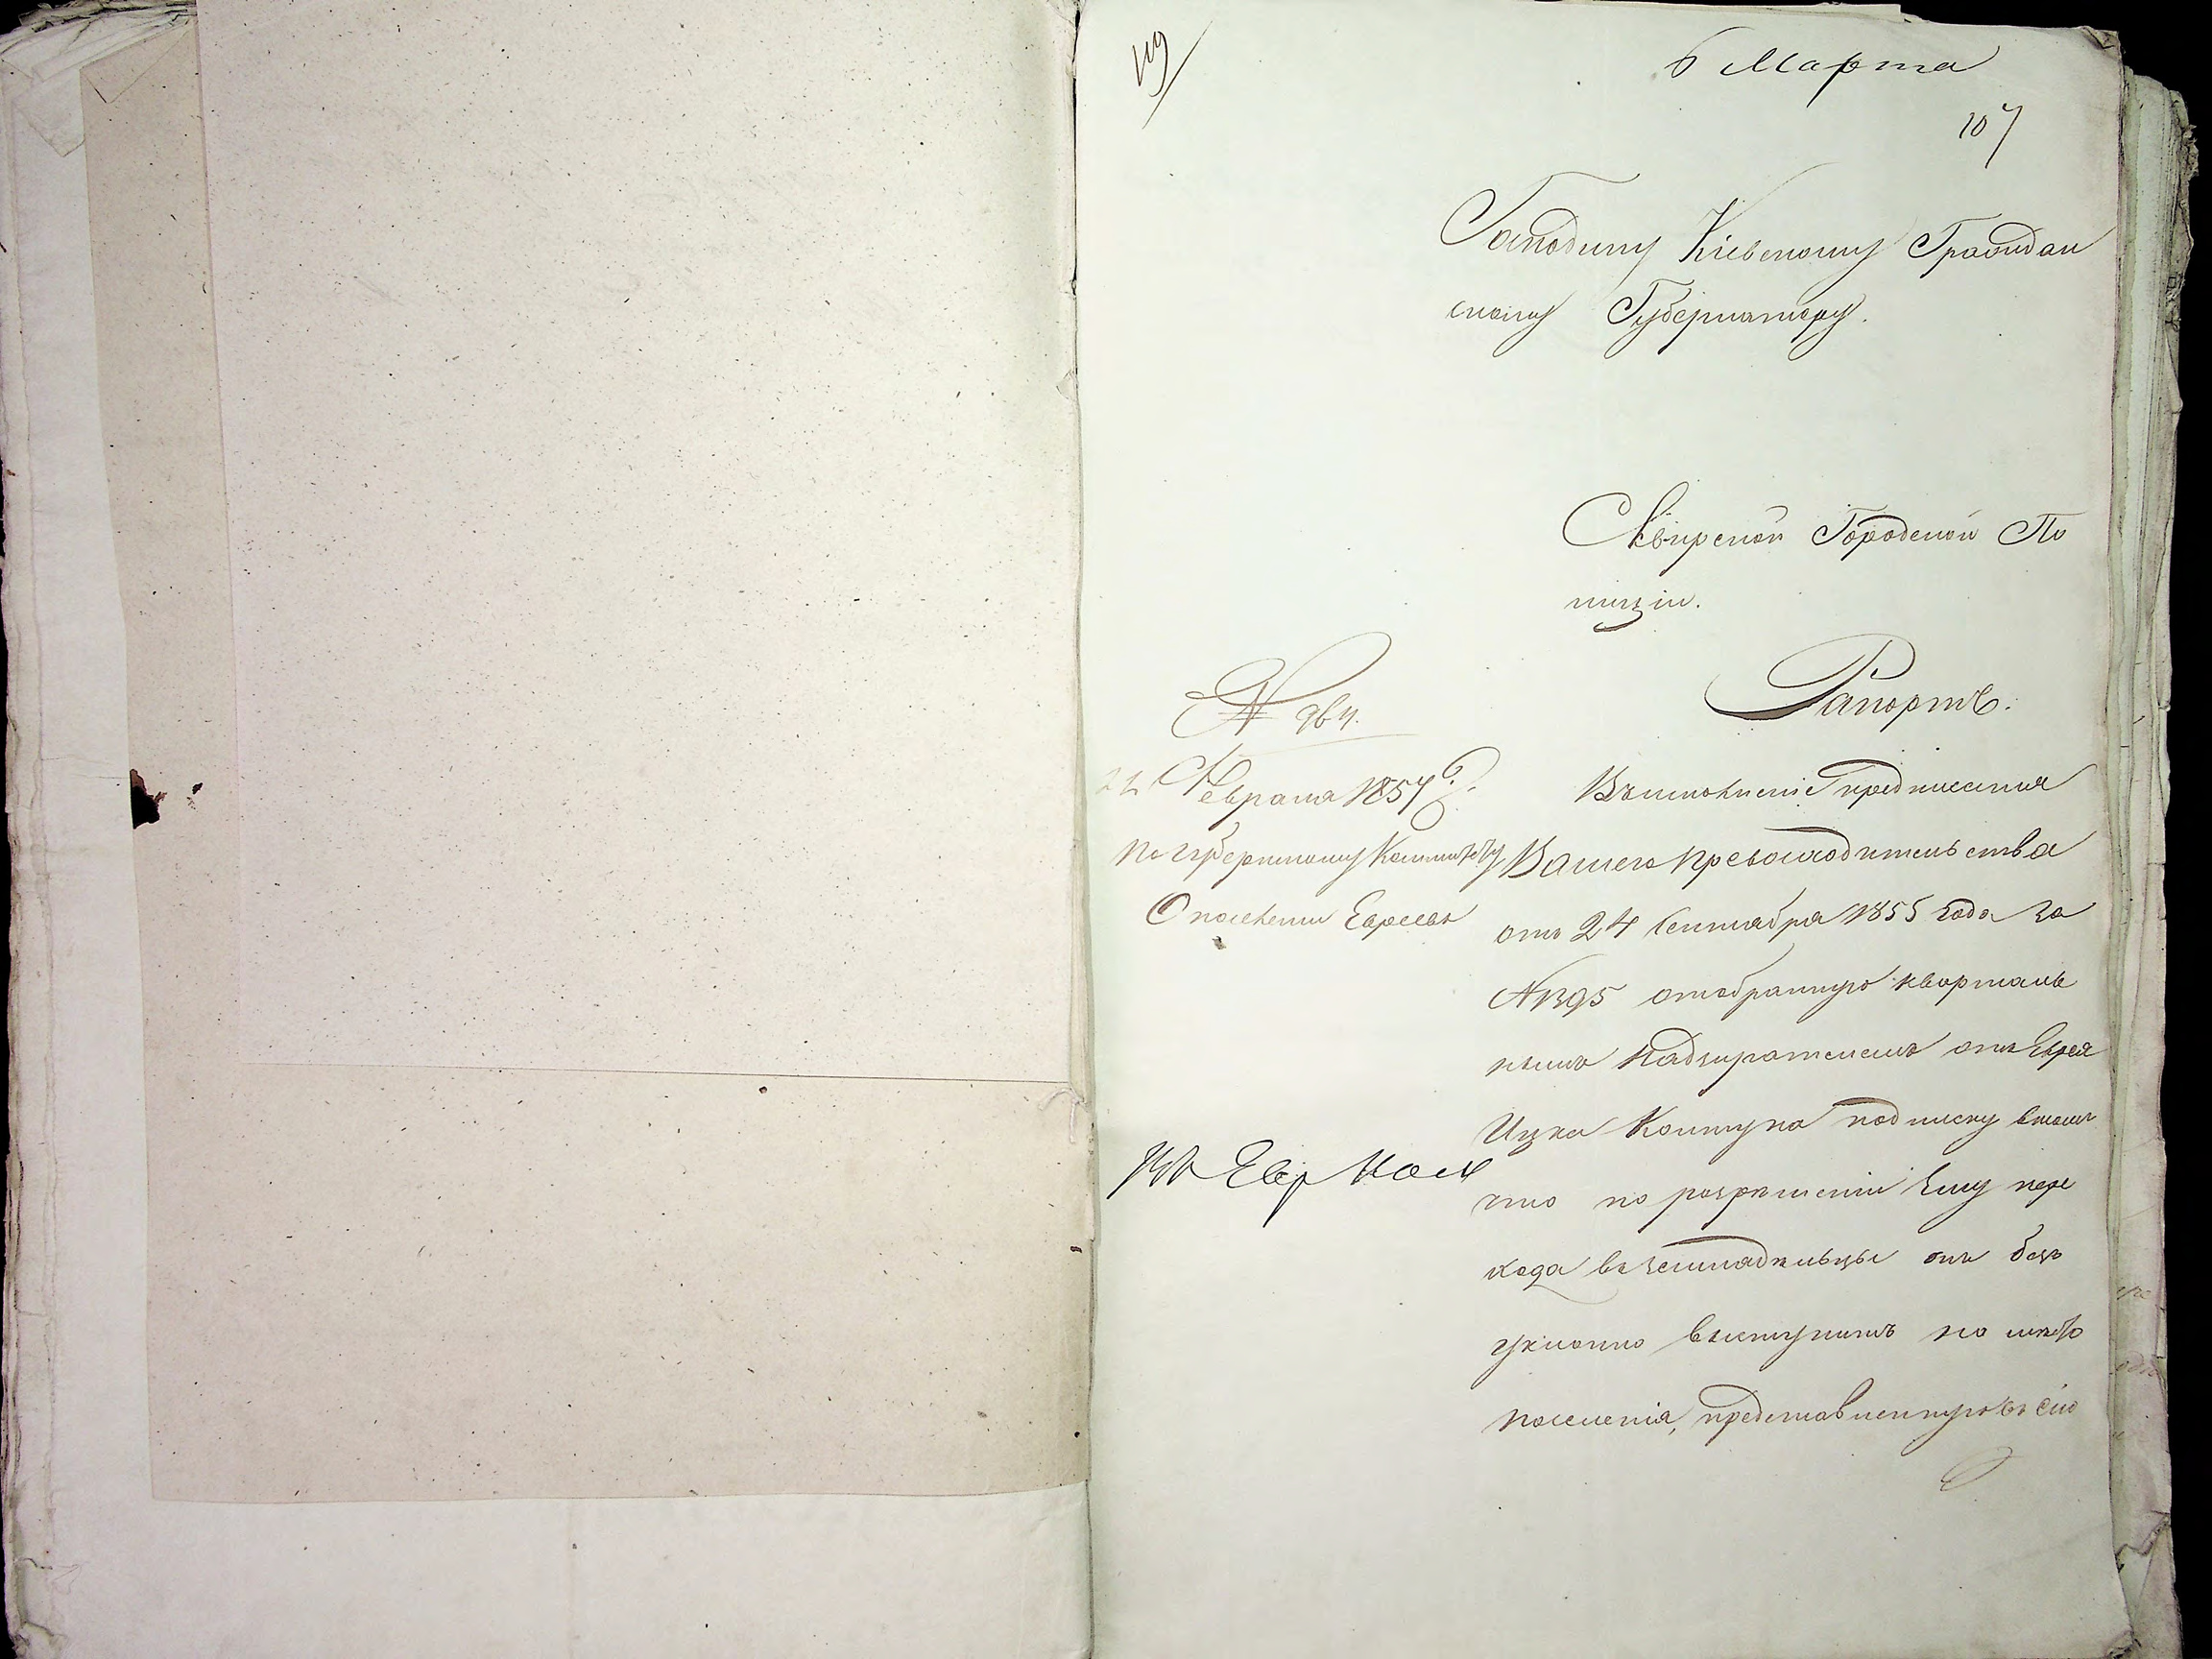 119
6 Марта
107
Господину Кіевскому Граждан
скому Губернатору.
Сквирской Городской По
лиціи.
Рапортъ.
№ 964.
22 Февраля 1857 г.
По губернскому Комитету
О поселении Евреевъ
Въисполненіе предписанія
Вашего превосходительства
отъ 24 Сентября 1855 года за
№ 1395 отобранную кварталь
нымъ Надзирателемъ отъ Еврея
Ицка Колтуна подписку втомъ
что по разрешеніи Ему пере
хода въземлядельцы онъ безъ
уклонно выступитъ на место
поселенія, представленную въ сію